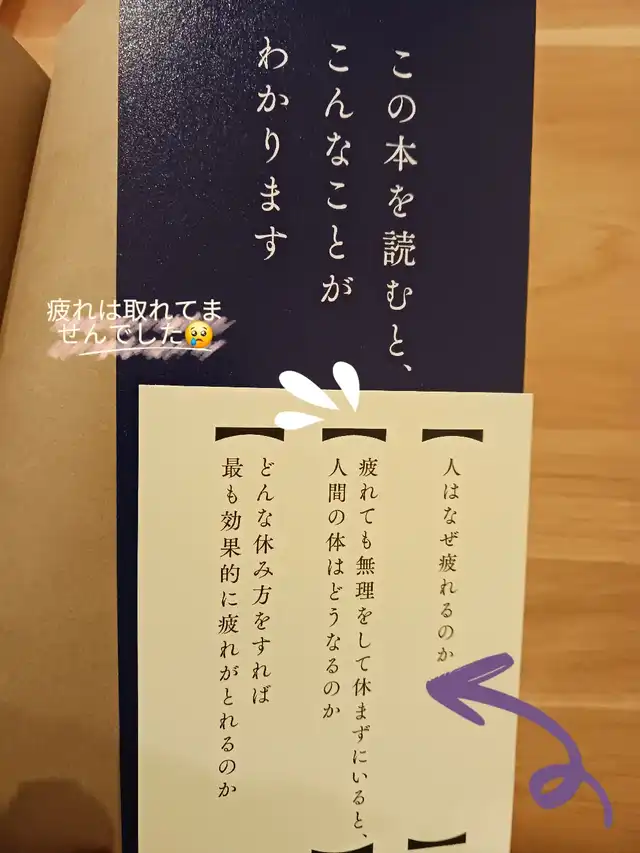 この本を読むと、
こんなことが
わかります
疲れは取れてま
せんでした😢
人はなぜ疲れるのか
疲れても無理をして休まずにいると、
人間の体はどうなるのか
どんな休み方をすれば
最も効果的に疲れがとれるのか